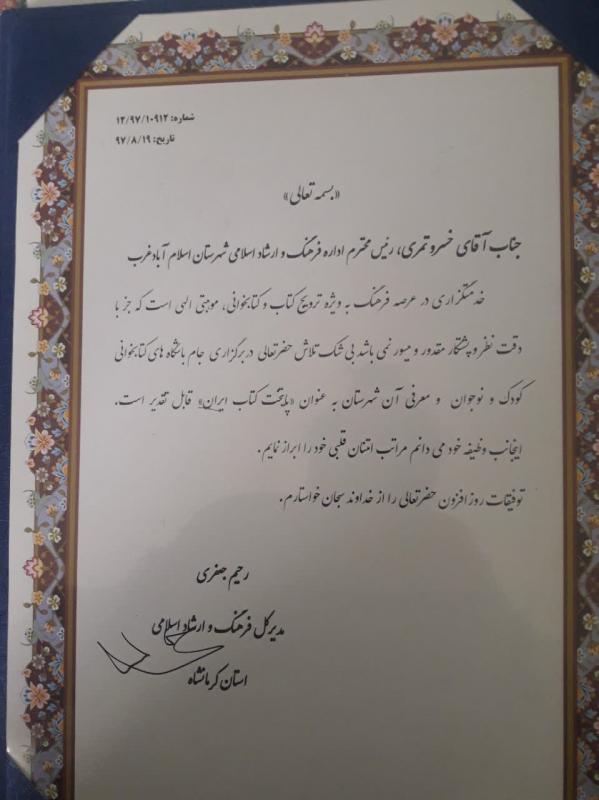 شماره: ۱۲/۹۷/۱۰۹۱۲
تاریخ: ۹۷/۸/۱۹
«بسمه تعالی»
جناب آقای خسرو تمری، رئیس محترم اداره فرهنگ و ارشاد اسلامی شهرستان اسلام آبادغرب
خدمتگزاری در عرصه فرهنگ به ویژه ترویج کتاب و کتابخوانی، موهبتی الهی است که جز با
دقت نظر و پشتکار مقدور و میسور نمی باشد بی شک تلاش حضرتعالی در برگزاری جام باشگاه های کتابخوانی
کودک و نوجوان و معرفی آن شهرستان به عنوان «پایتخت کتاب ایران» قابل تقدیر است.
اینجانب وظیفه خود می دانم مراتب امتنان قلبی خود را ابراز نمایم.
توفیقات روز افزون حضرتعالی را از خداوند سبحان خواستارم.
رحیم جعفری
مدیرکل فرهنگ و ارشاد اسلامی
استان کرمانشاه